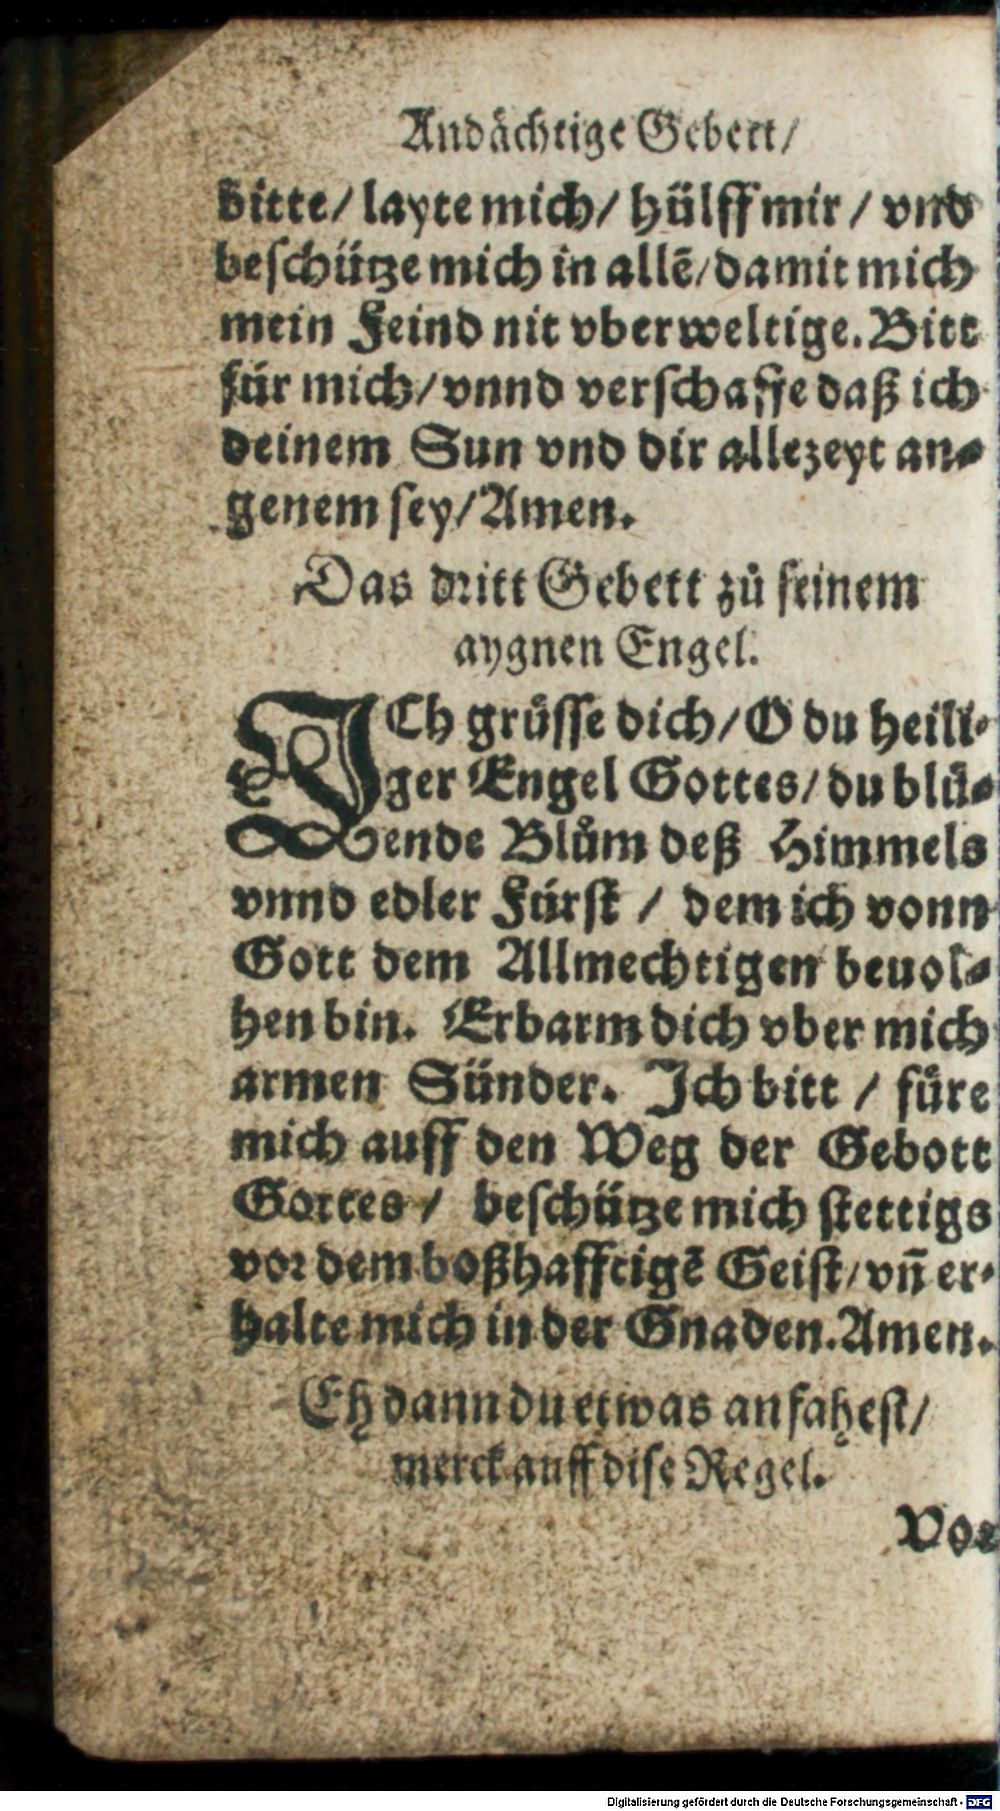 Andächtige Gebett/
bitte/ layte mich/ hülff mir / vnd
beschütze mich in allē/ damit mich
mein Feind nit vberweltige. Bitt
für mich/ vnnd verschaffe daß ich
deinem Sun vnd dir allezeyt an-
genem sey/ Amen.
Das dritt Gebett zů seinem
aygnen Engel.
ICh grüsse dich/ O du heili-
ger Engel Gottes/ du blü-
ende Blům deß Himmels
vnnd edler Fürst / dem ich vonn
Gott dem Allmechtigen beuol-
hen bin. Erbarm dich vber mich
armen Sünder. Ich bitt / füre
mich auff den Weg der Gebott
Gottes / beschütze mich stettigs
vor dem boßhafftigē Geist/ vn̄ er-
halte mich in der Gnaden. Amen.
Eh dann du etwas anfahest/
merck auff dise Regel.
Vor
Digitalisierung gefördert durch die Deutsche Forschungsgemeinschaft - DFG